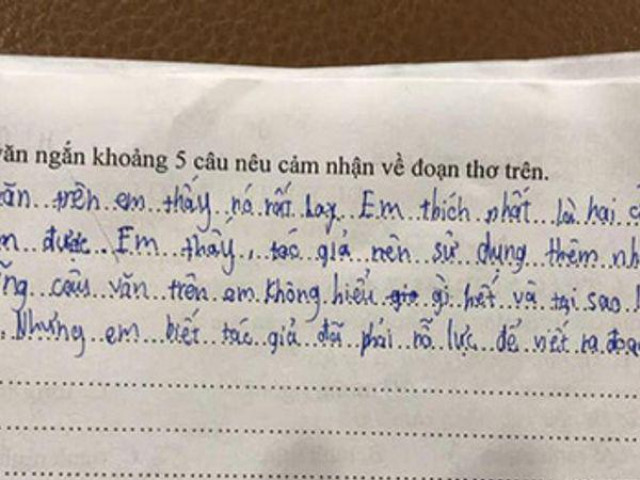 văn ngắn khoảng 5 câu nêu cảm nhận về đoạn thơ trên.
văn trên em thấy nó rất hay. Em thích nhất là hai
được. Em thấy, tác giả nên sử dụng thêm
câu văn trên em không hiểu gì hết và tại sao
Nhưng em biết tác giả đã phải nỗ lực để viết ra đoạn